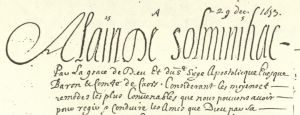 29 dec. 1643.
Alain De solminihac
Par la grace de Dieu et du St Siege Apostolique Evesque
Baron & Comte de Caors. Considerant les moyens et
remedes les plus convenables que nous pouvons avoir
pour regir & conduire les Ames que Dieu par sa